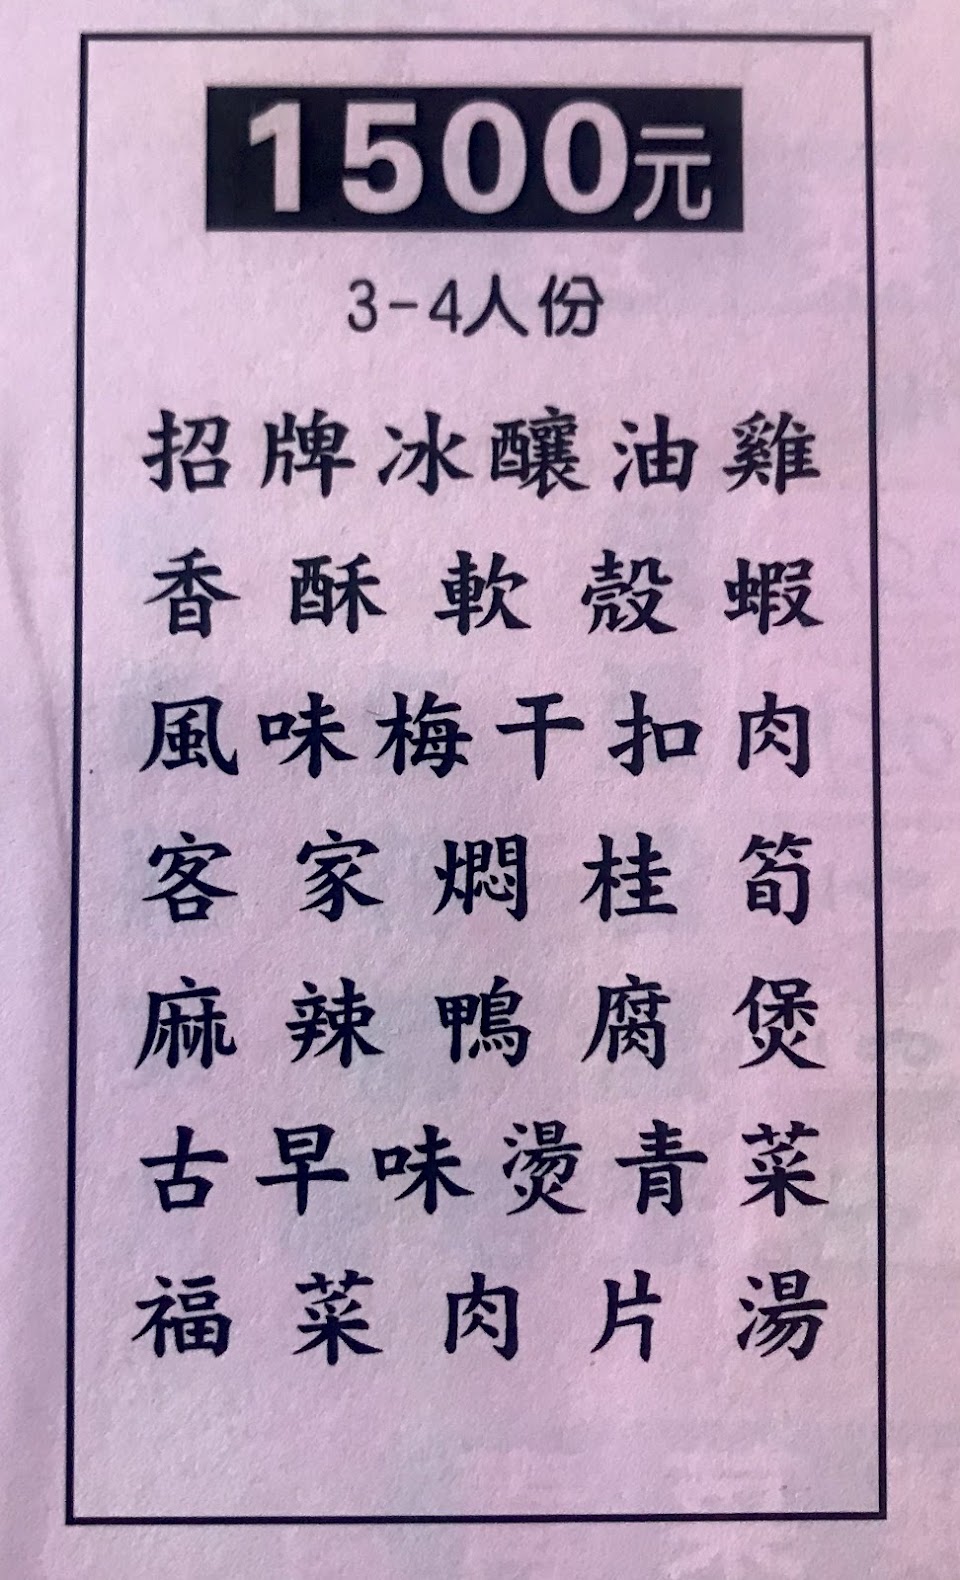 1500元
3-4人份
招牌冰釀油雞
香酥軟殼蝦
風味梅干扣肉
客家燜桂筍
麻辣鴨腐煲
古早味燙青菜
福菜肉片湯